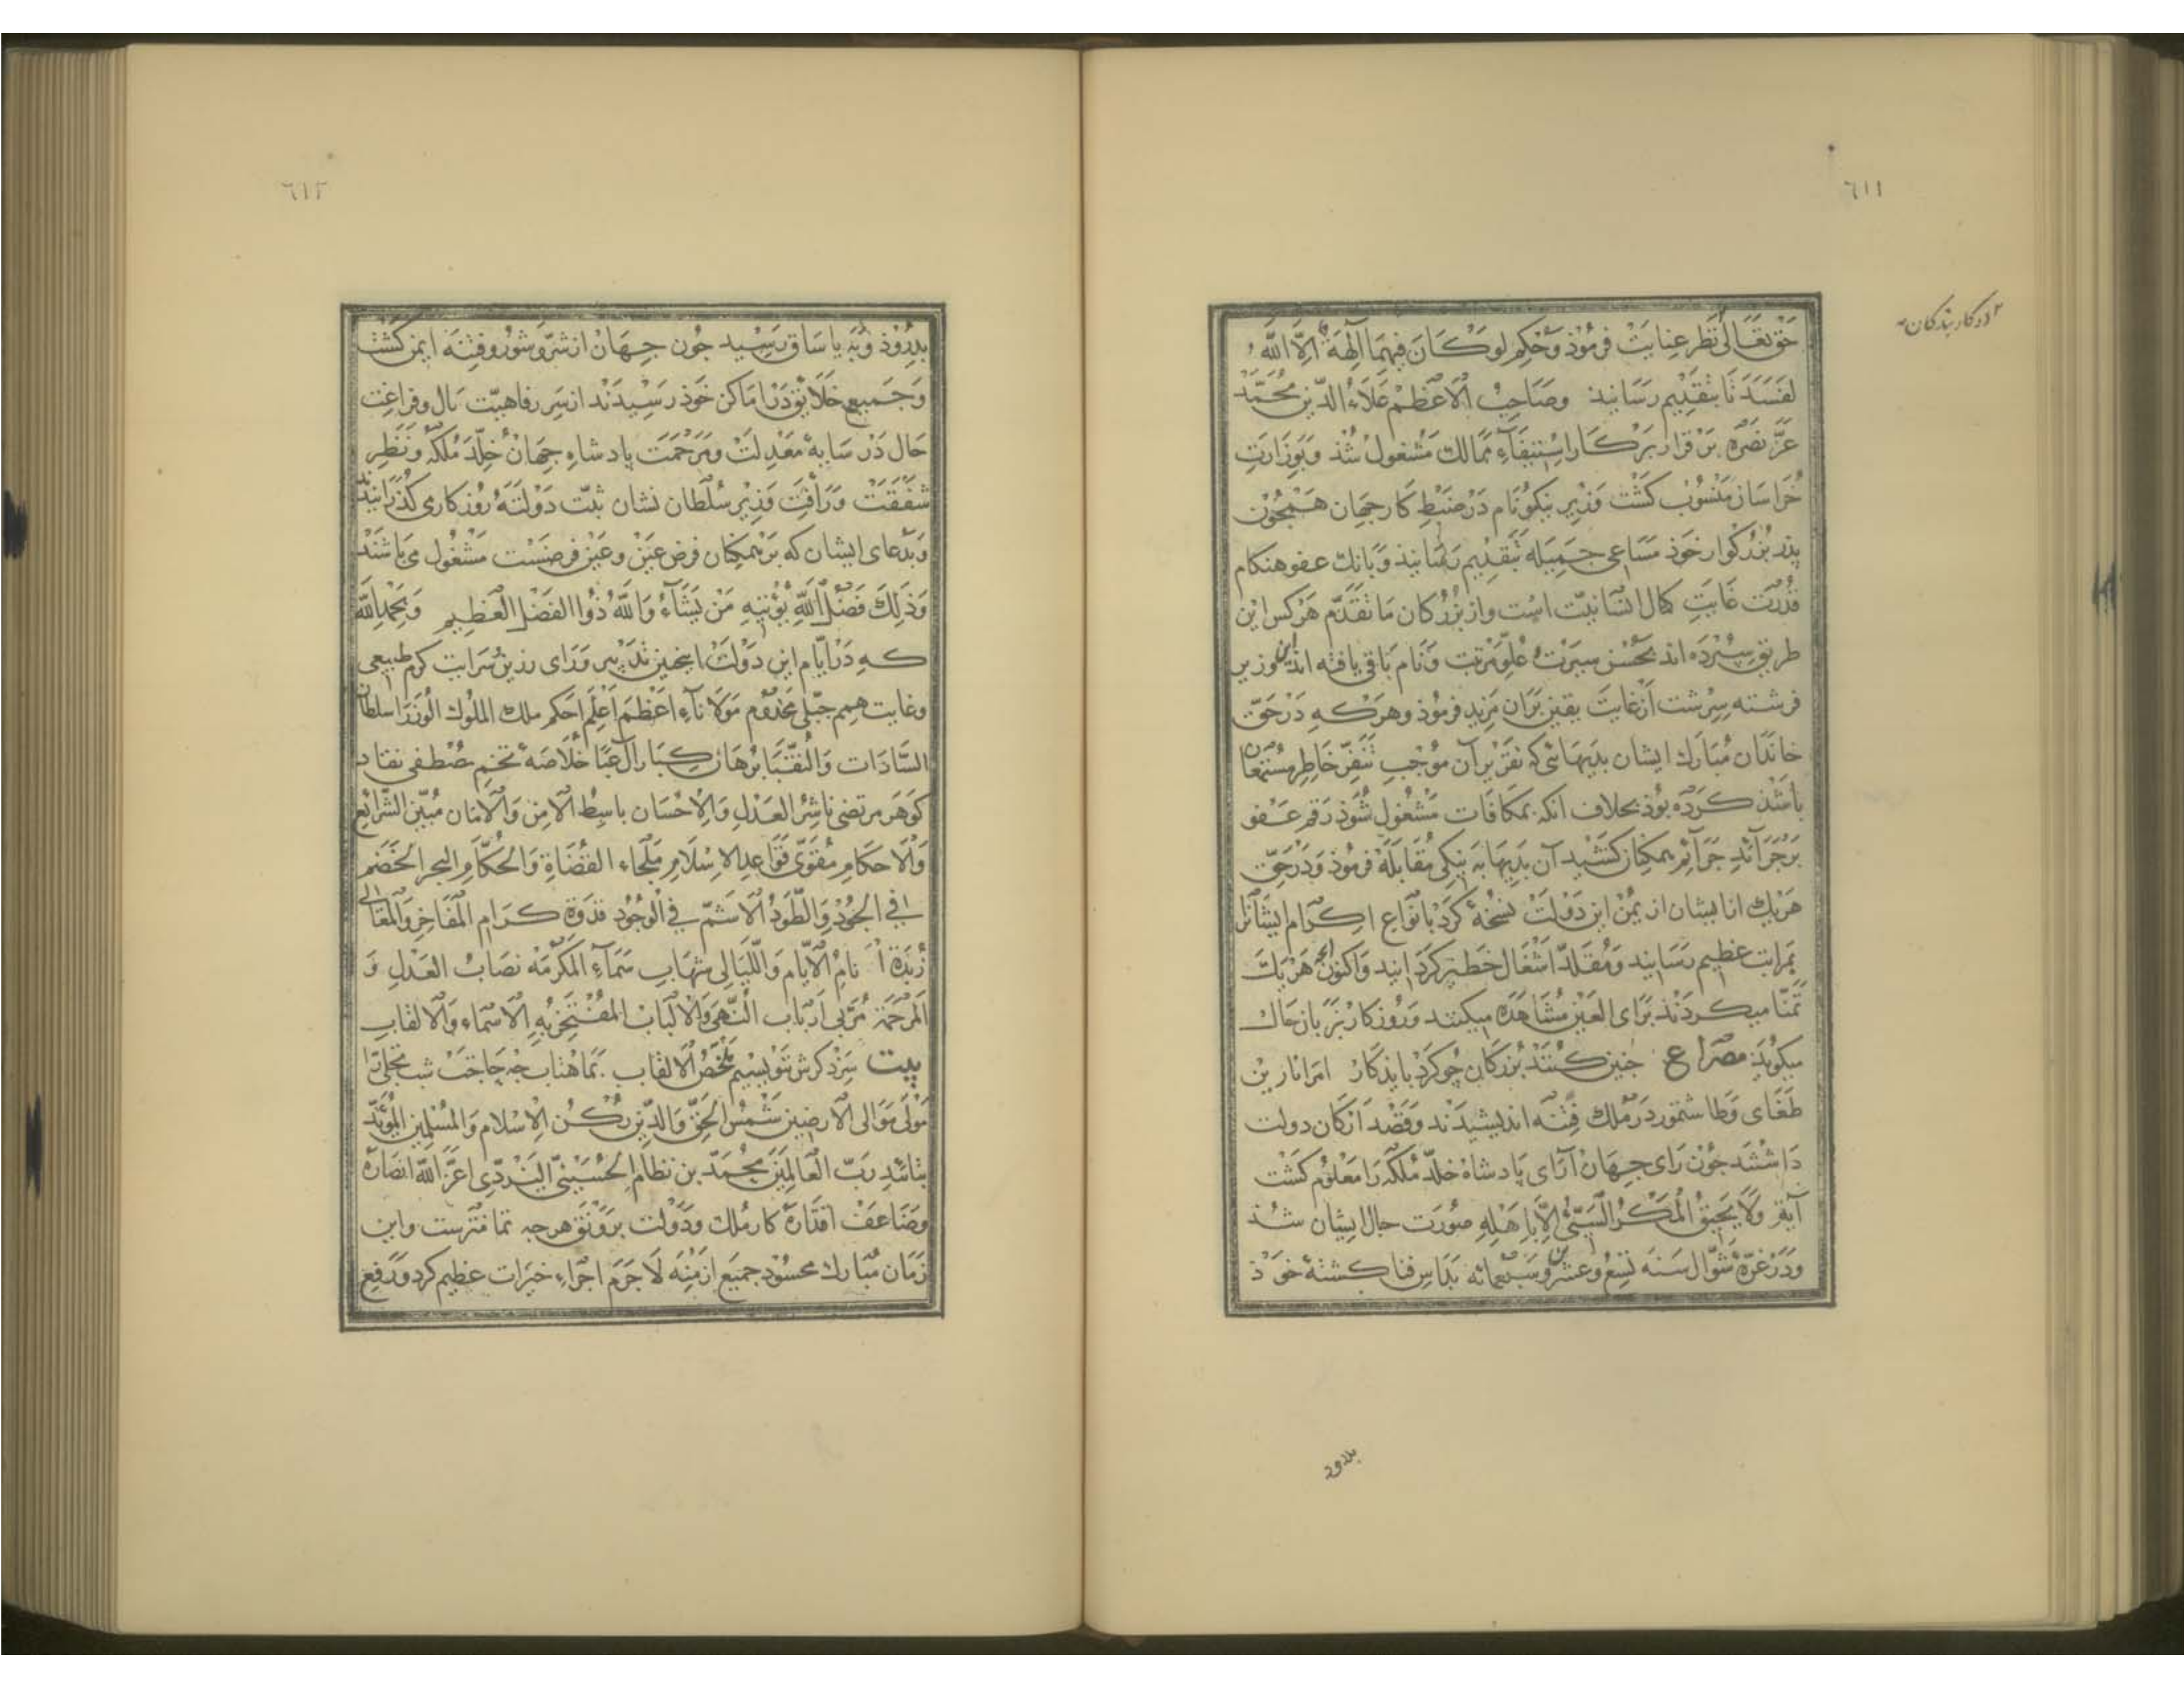 ٦١١
در کار بندگان
حق تعالی نظر عنایت فرموذ و حکم لو کان فیهما آلهة الا الله
لفسدتا بتقدیم رسانید وصاحب الاعظم علاء الدین محمد
عز نصره بر قرار بر کار استیفاء ممالک مشغول شذ و بوزارت
خراسان منسوب کشت وزیر نیکو نام در ضبط کار جهان همجون
پدر بزرکوار خوذ مساعی جمیله بتقدیم رسانید و بانک عفو هنکام
قدرت غایت کمال انسانیت است واز بزرکان ما تقدم هر کس این
طریق سپرده اند بحسن سیرت و علو مرتبت و نام باقی یافته اند این وزیر
فرشته سرشت از غایت یقین بران مزید فرموذ وهرکه در حق
خاندان مبارک ایشان بدیهائی که تقریر آن موجب تنفر خاطر مستمعان
باشذ کرده بوذ بخلاف آنکه بمکافات مشغول شوذ رقم عفو
بر جرائد جرائم همکنان کشید آن بدیها به نیکی مقابله فرموذ و در حق
هر یک از ایشان از یمن این دولت نسخهٔ کرد بانواع اکرام ایشانرا
بمراتب عظیم رسانید ومقلد اشغال خطیر کردانید واکنون انجه هر یک
تمنا میکردند برای العین مشاهده میکنند و روزکار بزبان حال
میکوید مصراع جنین کنند بزرکان جو کرد باید کار امرا نارین
طغای وطاشتمور در ملک فتنه اندیشیدند وقصد ارکان دولت
داشتند جون رای جهان آرای پادشاه خلد ملکه را معلوم کشت
آیة ولا یحیق المکر السیئ الا باهله صورت حال ایشان شذ
ودر غرهٔ شوال سنه تسع وعشرین وسبعمائه بداس فنا کشتهٔ خوذ
بدرود
٦١٢
بدروذ و به یاسا ق رسید جون جهان از شر و شور و فتنه ایمن کشت
وجمیع خلایق در اماکن خوذ رسیدند از سر رفاهیت بال وفراغت
حال در سایهٔ معدلت ومرحمت پادشاه جهان خلد ملکه و نظر
شفقت ورأفت وزیر سلطان نشان ثبت دولته روزکار می کذرانیدند
وبدعای ایشان که بر همکنان فرض عین وعین فرضست مشغول می باشند
وذلک فضل الله یؤتیه من یشاء والله ذوا الفضل العظیم وبحمد الله
که در ایام این دولت اینجنین تدبیر ورای رزین سرایت کرم طبیعی
وغایت همم جبلی مخدوم مولاناء اعظم اعلم احکم ملک الملوک الوزرا سلطان
السادات والنقبا برهان کبار آل عبا خلاصهٔ تخم مصطفی نقاد
کوهر مرتضی ناشر العدل والاحسان باسط الامن والامان مبین الشرائع
والاحکام مقوی قواعد الاسلام ملجاء القضاة والحکام البحر الخضم
فی الجود والطود الاشم فی الوجود قدوة کرام المفاخر والمعالی
زبدة انام الایام واللیالی شهاب سماء المکرمه نصاب العدل و
المرحمة مربی ارباب النهی والالباب المفتخر به الاسماء والالقاب
بیت سزد کرش ننویسیم ملخص الالقاب بماهتاب جه حاجت شب تجلی را
مولی موالی الارضین شمس الحق والدین رکن الاسلام والمسلمین المؤید
بتائید رب العالمین محمد بن نظام الحسینی الیزدی اعز الله انصاره
وضاعف اقتداره کار ملک ودولت برونق هرجه تمامترست واین
زمان مبارک محسود جمیع ازمنه لا جرم اجراء خیرات عظیم کرد ورفع